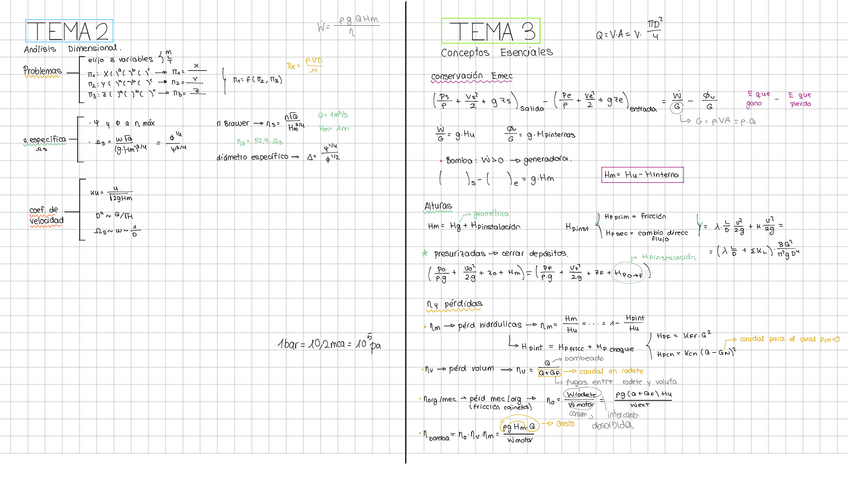 TEMA 2
Ẇ = ρgQHm / η
Análisis Dimensional.
Problemas
elijo 3 variables
π1: X( )ᵃ( )ᵇ( )ᶜ → π1 = X
π2: Y( )ᵃ( )ᵇ( )ᶜ → π2 = Y
π3: Z( )ᵃ( )ᵇ( )ᶜ → π3 = Z
π1 = f(π2, π3)
Re = ρVD / μ
n específica
Ωs
· Ψ y Φ a η máx
· Ωs = ω√Q / (g·Hm)^3/4 = Φ^1/2 / Ψ^3/4
n Brauer → ns = n√Q / Hm^3/4
Q = 1 m³/s
Hm = 1m
ns = 52,9·Ωs
diámetro específico → Δ = Ψ^1/4 / Φ^1/2
coef. de velocidad
Ku = u / √2gHm
D² ~ Q/√H
Ωs ~ ω ~ 1/D
1bar = 10,2mca = 10⁵ pa
TEMA 3
Q = V·A = V· πD² / 4
Conceptos Esenciales
conservación Emec
(Ps/ρ + Vs²/2 + gzs)salida - (Pe/ρ + Ve²/2 + gze)entrada = Ẇ/G - Φv/G
E que gano - E que pierdo
G = ρ·VA = ρ.Q
Ẇ/G = g·Hu Φv/G = g·Hpinternas
· Bomba: Ẇ>0 → generadora.
( )s - ( )e = g·Hm
Hm = Hu - Hinterno
Alturas
geométrica
Hm = Hg + Hpinstalación
Hpinst
Hpprim = fricción
Hpsec = cambio direcc flujo
= λ· L/D · V²/2g + K V²/2g =
= (λ L/D + ΣKL)· 8Q² / π²gD⁴
* presurizadas → cerrar depósitos.
Hpinstalación
(Po/ρg + Vo²/2g + zo + Hm) = (PF/ρ·g + VF²/2g + zF + HPO→F)
η y pérdidas
· ηm → pérd hidráulicas → ηm = Hm/Hu = .... = 1 - Hpint/Hu
Hpint = Hpfricc + Hp choque
HPF = KFr·Q²
HPch = Kch (Q - QN)²
caudal para el cual PCH=0
· ηv → pérd volum → ηv = Q / Q+QF
bombeado
caudal en rodete
fugas entre rodete y voluta
· ηorg/mec → pérd mec/org (fricción cojinetes) → ηo = Ẇrodete / Ẇmotor = ρg(Q+QF)Hu / Ẇext
absorbida
· ηbomba = ηo·ηv·ηm = ρgHm·Q / Ẇmotor